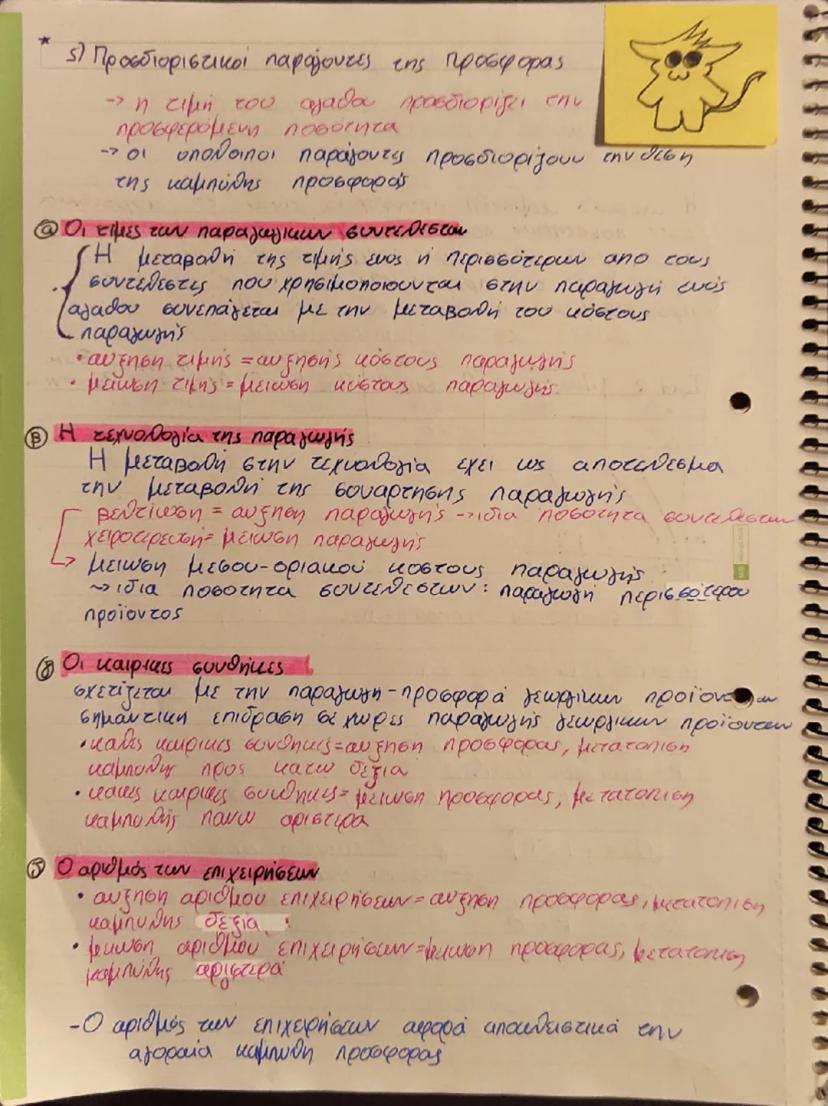 * 5) Προσδιοριστικοί παράγοντες της προσφορας
→ η τιμή του αγαθου προσδιορίζει την
προσφερόμενη ποσότητα
→ οι υπόλοιποι παράγοντες προσδιορίζουν την θεση
της καμπύλης προσφοράς
α Οι τιμες των παραγωγικων συντελεστων
Η μεταβολή της τιμής ενος ή περισσότερων απο τους
συντελεστες που χρησιμοποιουνται στην παραγωγή ενός
αγαθου συνεπάγεται με την μεταβολή του κόστους
παραγωγής
• αυξηση τιμής = αυξησής κόστους παραγωγής
• μείωση τιμής = μείωση κόστους παραγωγής.
β Η τεχνολογία της παραγωγής
Η μεταβολή στην τεχνολογία εχει ως αποτελεσμα
την μεταβολή της συναρτησης παραγωγής
βελτίωση = αυξηση παραγωγής → ιδια ποσότητα συντελεστων
χειροτερευση = μείωση παραγωγής
→ μείωση μεσου-οριακού κοστους παραγωγής
→ ιδια ποσότητα συντελεστων : παραγωγή περισσότερου
προϊοντος
γ Οι καιρικες συνθήκες
σχετίζεται με την παραγωγη-προσφορά γεωργικων
σημάντικη επιδραση σε χωρες παραγωγής γεωργικων προϊοντων
• καλες καιρικες συνθηκες = αυξηση προσφορας, μετατοπιση
καμπυλης προς κατω δεξια
• κακες καιρικες συνθηκες = μείωση προσφορας, μετατοπιση
καμπυλής πανω αριστερα
δ Ο αριθμός των επιχειρήσεων
• αυξηση αριθμου επιχειρήσεων = αυξηση προσφορας, μετατοπιση
καμπυλης δεξια
• μειωση αριθμου επιχειρήσεων = μειωση προσφορας, μετατοπιση
καμπύλης αριστερά
- Ο αριθμός των επιχειρήσεων αφορά αποκλειστικά την
αγοραία καμπυλη προσφορας